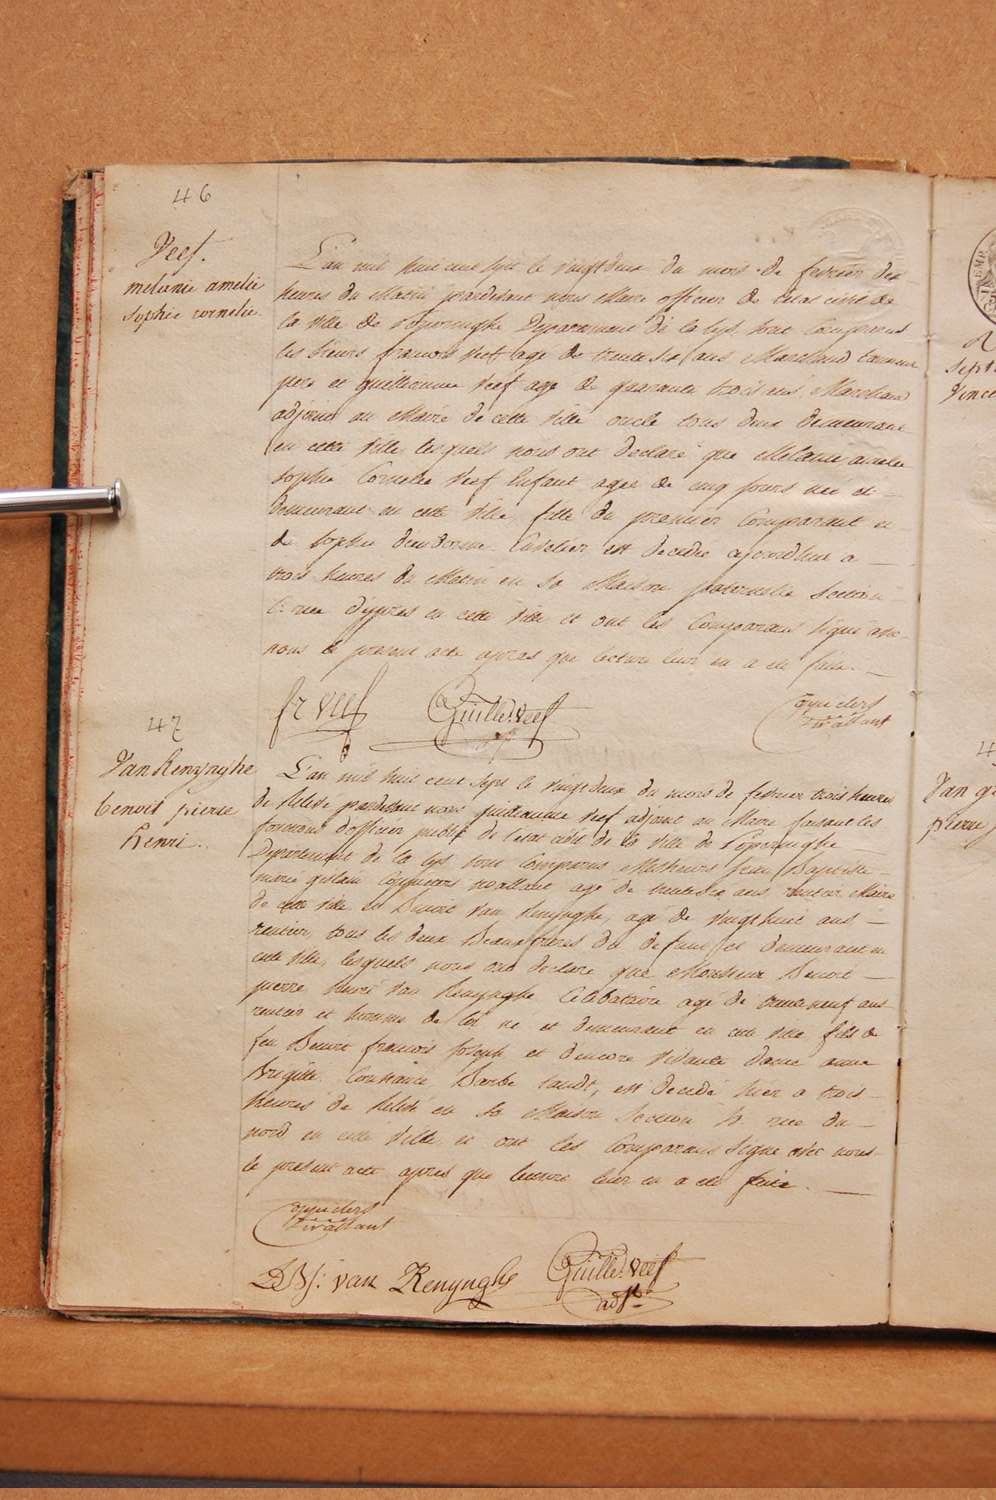 46
Veef.
melanie amelie
Sophie cornelie
L'an mil huit cent sept le vingt deux du mois de fevrier dix
heures du Matin pardevant nous Maire officier de l'etat civil de
la ville de Poperinghe Departement de la lys sont comparus
les Sieurs francois Veef agé de trente six ans Marchand tanneur
pere et guillaume Veef agé de quarante trois ans Marchand
adjoint au Maire de cette ville oncle tous deux demeurant
en cette ville, lesquels nous ont declaré que Melanie amelie
Sophie Cornelie Veef Enfant agée de cinq jours née et
demeurant en cette ville, fille du premier Comparant et
de Sophie est decedée ajourdhui a
trois heures du Matin en Sa Maison paternelle Section
rue d'ypres en cette ville et ont les Comparans Signé avec
nous le present acte apres que lecture leur en a eté faite.
fr veef Guille. Veef
47
Van Renynghe
benoit pierre
henri.
L'an mil huit cent sept le vingt deux du mois de fevrier trois heures
de Relevé pardevant nous guillaume Veef adjoint au Maire faisant les
fonctions d'officier public de l'etat civil de la ville de Poperinghe
Departement de la lys sont comparus Messieurs jean Baptiste
marie agé de trente six ans rentier Maire
de cette ville et Benoit Van Renynghe, agé de vingt huit ans
rentier, tous les deux Beaux freres du defunt et demeurant en
cette ville, lesquels nous ont declaré que Monsieur Benoit
pierre henri Van Renynghe Celibataire agé de trente neuf ans
rentier et homme de loi né et demeurant en cette ville fils de
feu Benoit francois Joseph et d'encore vivante dame anne
Brigitte Constance Barbe est decedé hier a trois
heures de Relevé en Sa Maison Section rue du
nord en cette ville et ont les Comparans Signé avec nous
le present acte aprés que lecture leur en a eté faite.
van Renynghe Guille. Veef
adjt.